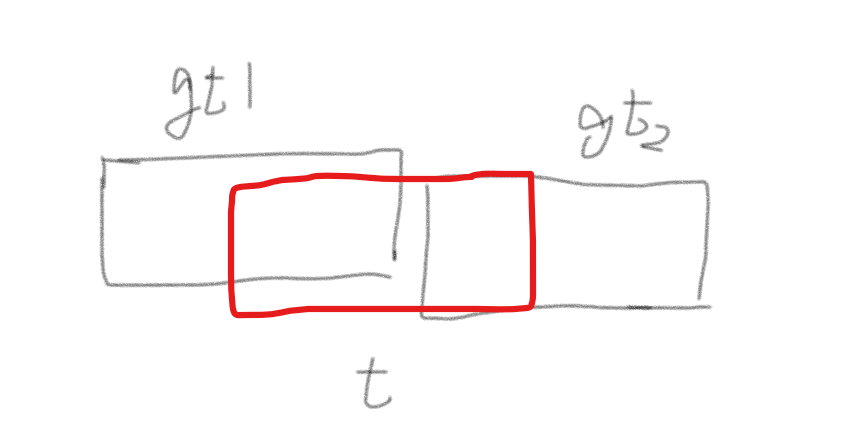 gt1
gt2
t